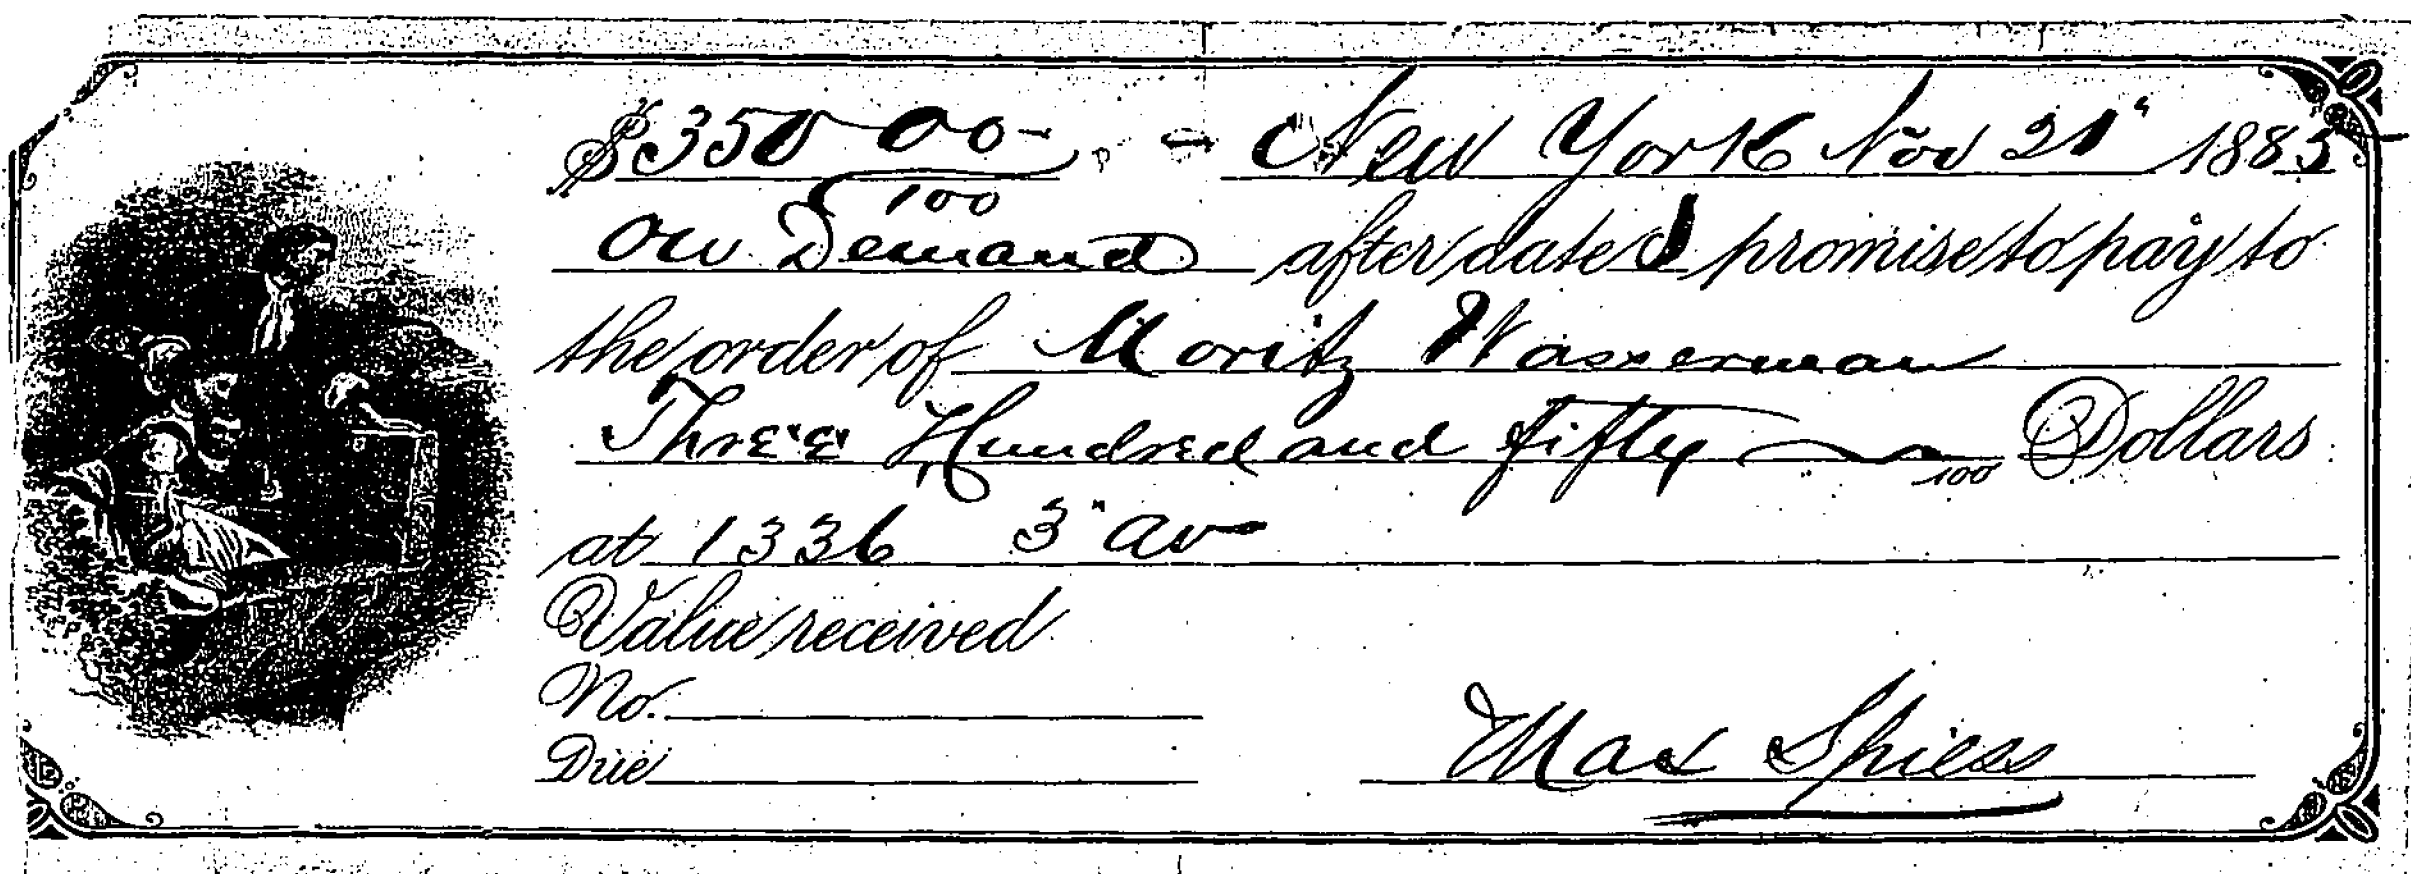 $350 00/100 - New York Nov 21" 1885
On Demand after date I promise to pay to
the order of Moritz Wasserman
Three Hundred and fifty /100 Dollars
at 1336 3" av
Value received
No.
Due Max Spiess